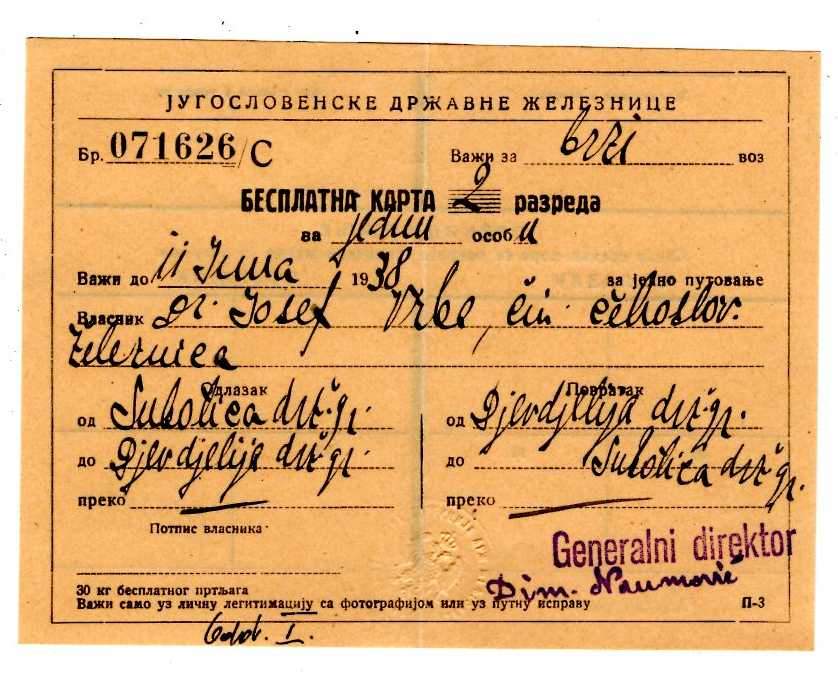 ЈУГОСЛОВЕНСКЕ ДРЖАВНЕ ЖЕЛЕЗНИЦЕ
Бр. 071626/C Важи за brzi воз
БЕСПЛАТНА КАРТА 2 разреда
за jednu особu
Важи до 11 Juna 1938 за једно путовање
Власник Dr. Josef Vrba, čin. čehoslov.
železnica
Одлазак Повратак
од Subotica drž. gr. од Djevdjelija drž. gr.
до Djevdjelija drž. gr. до Subotica drž. gr.
преко преко
Потпис власника
Generalni direktor
Dim. Naumović
30 кг бесплатног пртљага
Важи само уз личну легитимацију са фотографијом или уз путну исправу П-3
I.